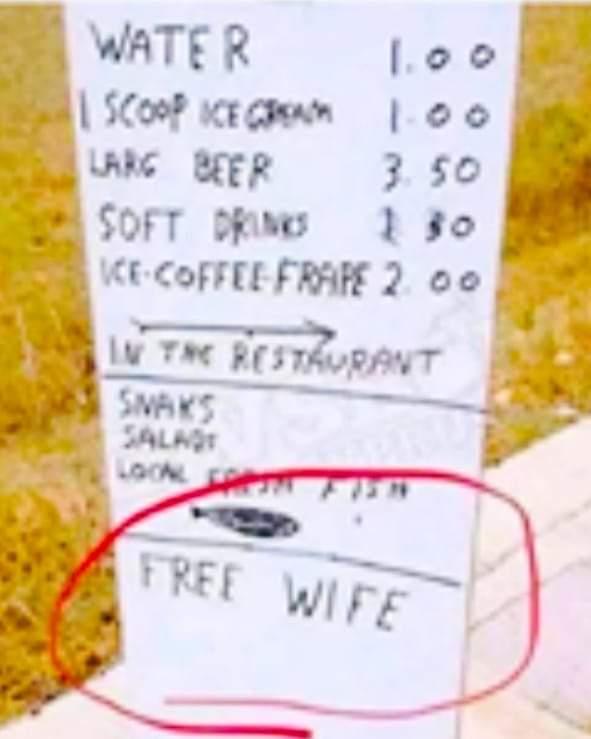 WATER 1.00
1 SCOOP ICE CREAM 1.00
LARG BEER 3.50
SOFT DRINKS
ICE-COFFEE-FRAPE 2.00
IN THE RESTAURANT
SNAKS
SALADS
LOCAL FRESH FISH
FREE WIFE